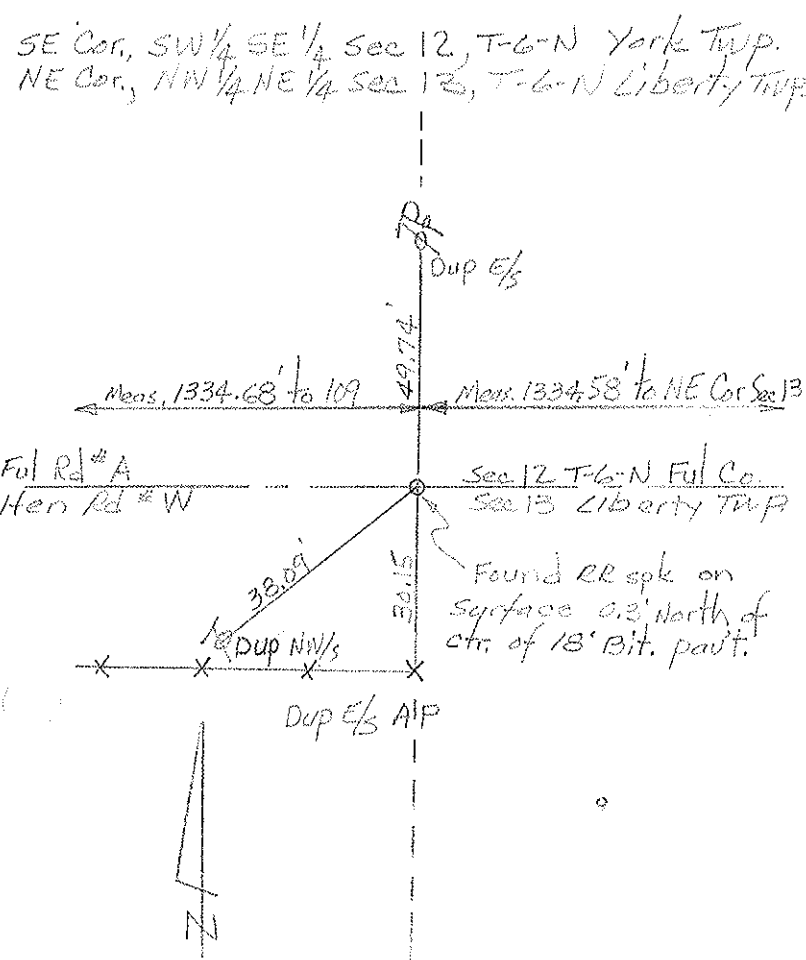 SE Cor., SW 1/4, SE 1/4 Sec 12, T-6-N York Twp.
NE Cor., NW 1/4 NE 1/4 Sec 13, T-6-N Liberty Twp
Dup E/S
49.74'
Meas. 1334.68' to 109
Meas. 1334.58' to NE Cor Sec 13
Ful Rd # A
Hen Rd # W
Sec 12 T-6-N Ful Co.
Sec 13 Liberty Twp
38.09'
30.15
Found RR spk on
Surface 0.3' North of
ctr. of 18' Bit. pav't.
Dup NW/s
Dup E/s A/P
N